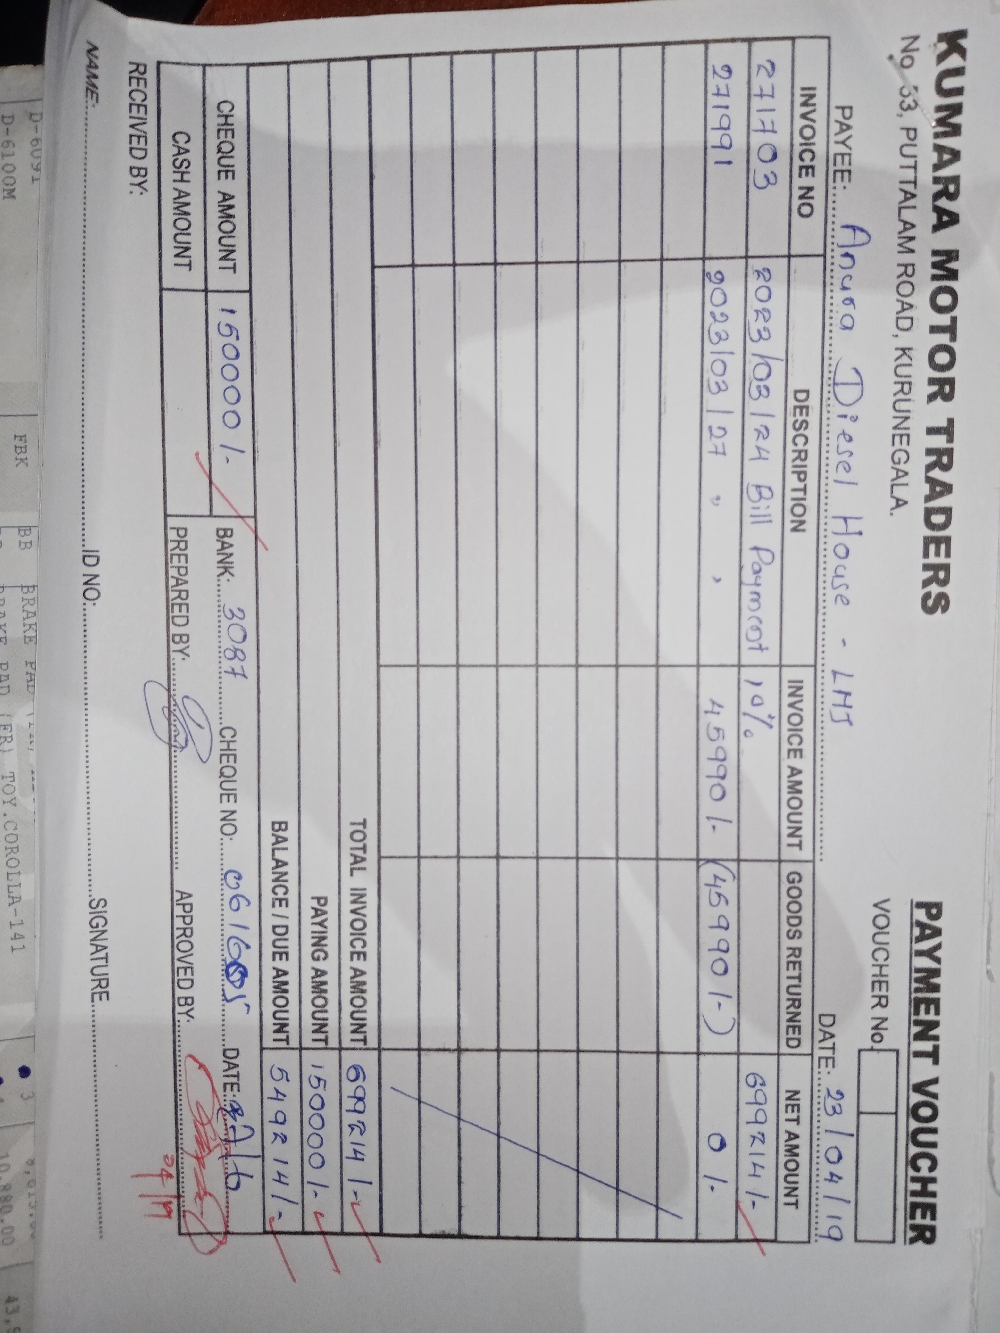 KUMARA MOTOR TRADERS
No. 53, PUTTALAM ROAD, KURUNEGALA.
PAYMENT VOUCHER
VOUCHER No.
PAYEE: Anura Diesel House - LMJ DATE: 23/04/19
INVOICE NO DESCRIPTION INVOICE AMOUNT GOODS RETURNED NET AMOUNT
271703 2023/03/24 Bill Payment 19% 699214/-
271991 2023/03/27 " " 45990/- (45990/-) 0/-
TOTAL INVOICE AMOUNT 699214/-
PAYING AMOUNT 150000/-
BALANCE / DUE AMOUNT 549214/-
CHEQUE AMOUNT 150000/- BANK: 3087 CHEQUE NO: 061605 DATE:
CASH AMOUNT PREPARED BY: APPROVED BY:
RECEIVED BY:
NAME: ID NO: SIGNATURE
D-6091 BB BRAKE PAD
D-6100M FBK BRAKE PAD (FR) TOY.COROLLA-141 10,980.00